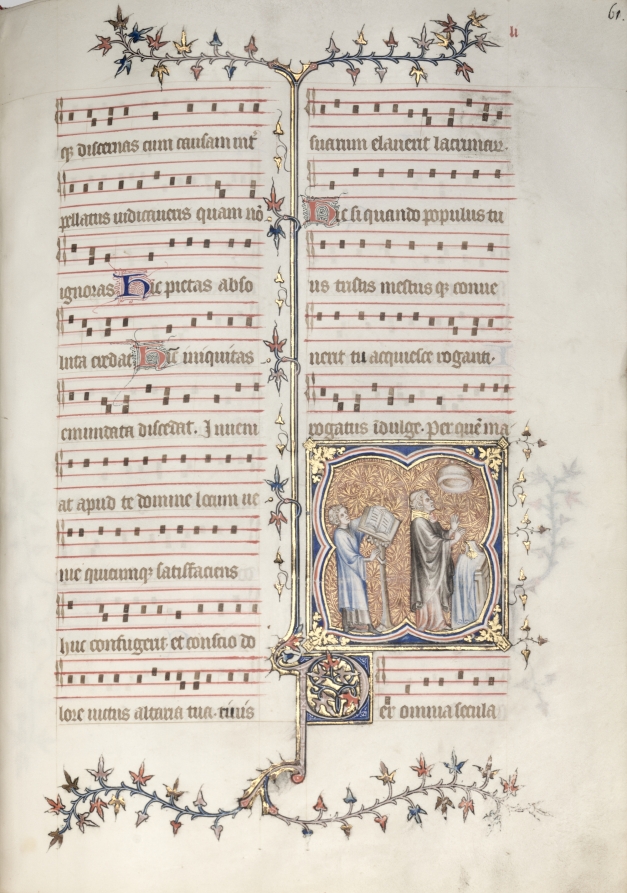 61.
li
q̃ discernas cum causam int̃
pellatus iudicaueris quam nõ
ignoras Hic pietas abso
luta credat Hic iniquitas
emundata discedat. Inueni
at apud te domine locum ue
nie quicumq̃ satisfaciens
huc confugerit et conscio do
lore uictus altaria tua. riuis
suarum elauerit lacrimaꝝ.
Hic si quando populus tu
us tristis mestus q̃ conue
nerit tu acquiesce rogari.
rogatus ĩdulge. Per quẽ ma
Per omnia secula